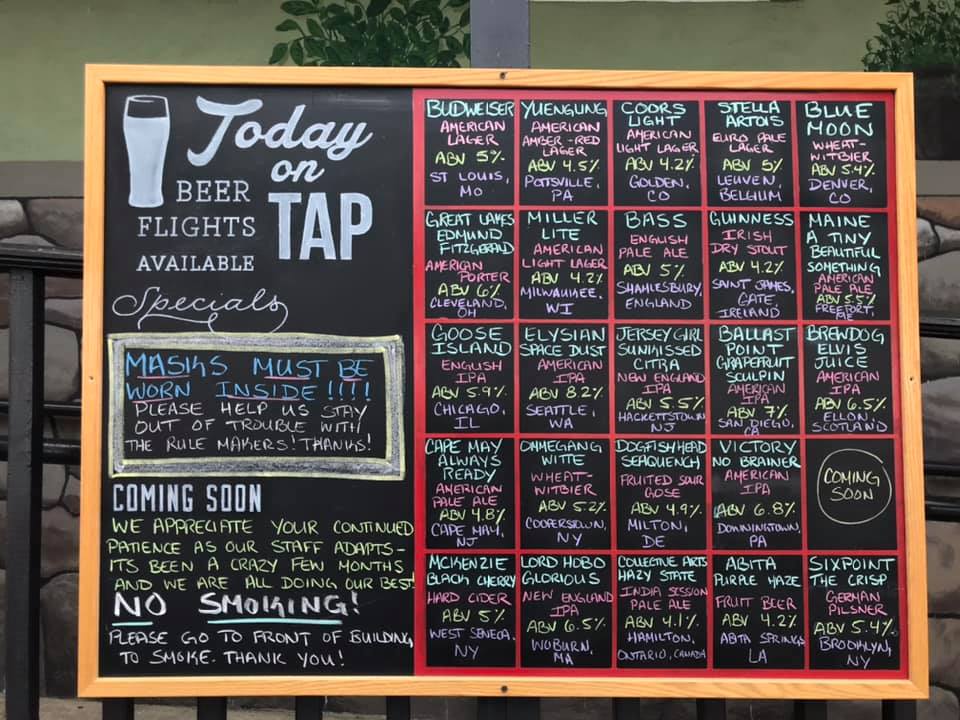 Today
on
TAP
BEER
FLIGHTS
AVAILABLE
Specials
MASKS MUST BE
WORN INSIDE!!!!
PLEASE HELP US STAY
OUT OF TROUBLE WITH
THE RULE MAKERS! THANKS!
COMING SOON
WE APPRECIATE YOUR CONTINUED
PATIENCE AS OUR STAFF ADAPTS-
ITS BEEN A CRAZY FEW MONTHS
AND WE ARE ALL DOING OUR BEST!
NO SMOKING!
PLEASE GO TO FRONT OF BUILDING
TO SMOKE. THANK YOU!
BUDWEISER
AMERICAN
LAGER
ABV 5%
ST LOUIS,
MO
YUENGLING
AMERICAN
AMBER-RED
LAGER
ABV 4.5%
POTTSVILLE,
PA
COORS
LIGHT
AMERICAN
LIGHT LAGER
ABV 4.2%
GOLDEN,
CO
STELLA
ARTOIS
EURO PALE
LAGER
ABV 5%
LEUVEN,
BELGIUM
BLUE
MOON
WHEAT-
WITBIER
ABV 5.4%
DENVER,
CO
GREAT LAKES
EDMUND
FITZGERALD
AMERICAN
PORTER
ABV 6%
CLEVELAND,
OH
MILLER
LITE
AMERICAN
LIGHT LAGER
ABV 4.2%
MILWAUKEE,
WI
BASS
ENGLISH
PALE ALE
ABV 5%
SHAHLESBURY,
ENGLAND
GUINNESS
IRISH
DRY STOUT
ABV 4.2%
SAINT JAMES,
GATE,
IRELAND
MAINE
A TINY
BEAUTIFUL
SOMETHING
AMERICAN
PALE ALE
ABV 5.5%
FREEPORT,
ME
GOOSE
ISLAND
ENGLISH
IPA
ABV 5.9%
CHICAGO,
IL
ELYSIAN
SPACE DUST
AMERICAN
IPA
ABV 8.2%
SEATTLE,
WA
JERSEY GIRL
SUNKISSED
CITRA
NEW ENGLAND
IPA
ABV 5.5%
HACKETTSTOWN
NJ
BALLAST
POINT
GRAPEFRUIT
SCULPIN
AMERICAN
IPA
ABV 7%
SAN DIEGO,
CA
BREWDOG
ELVIS
JUICE
AMERICAN
IPA
ABV 6.5%
ELLON,
SCOTLAND
CAPE MAY
ALWAYS
READY
AMERICAN
PALE ALE
ABV 4.8%
CAPE MAY,
NJ
OMMEGANG
WITTE
WHEAT-
WITBIER
ABV 5.2%
COOPERSTOWN,
NY
DOGFISHHEAD
SEAQUENCH
FRUITED SOUR
GOSE
ABV 4.9%
MILTON,
DE
VICTORY
NO BRAINER
AMERICAN
IPA
ABV 6.8%
DOWNINGTOWN,
PA
COMING
SOON
MCKENZIE
BLACK CHERRY
HARD CIDER
ABV 5%
WEST SENECA,
NY
LORD HOBO
GLORIOUS
NEW ENGLAND
IPA
ABV 6.5%
WOBURN,
MA
COLLECTIVE ARTS
HAZY STATE
INDIA SESSION
PALE ALE
ABV 4.1%
HAMILTON,
ONTARIO, CANADA
ABITA
PURPLE HAZE
FRUIT BEER
ABV 4.2%
ABITA SPRINGS
LA
SIXPOINT
THE CRISP
GERMAN
PILSNER
ABV 5.4%
BROOKLYN,
NY